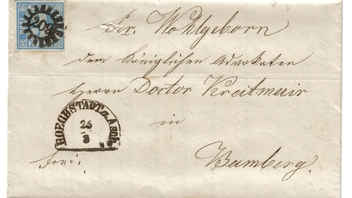 Sr. Wohlgeborn
dem Königlichen Advokaten
Herrn Doctor Kreitmair
in
HOECHSTADT a. Aisch.
26
3
Bamberg.